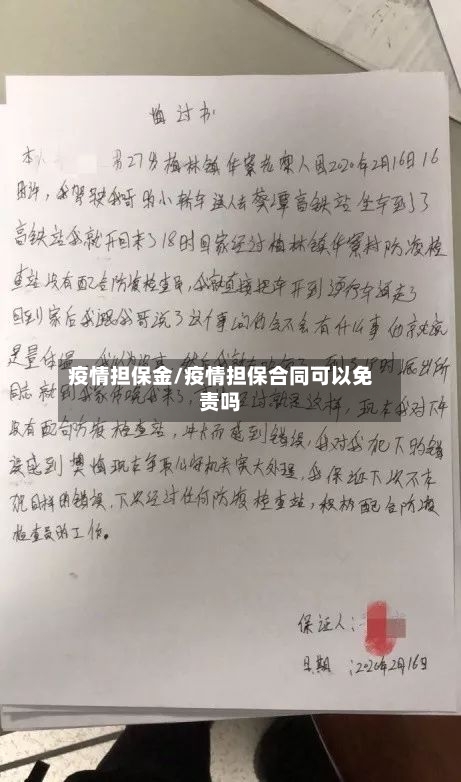 悔过书
本人 男27岁梅林镇华寮老寮人因2020年2月16日16
时许,我驾驶我哥的小轿车送人去葵潭高铁站坐车到了
高铁站我就开回来了18时回家经过梅林镇华寮村防疫检
查站没有配合防疫检查员,我就直接把车开到逆行车道走了
回到家后我跟我哥说了这件事问他会不会有什么事他就说
是量体温
疫情担保金/疫情担保合同可以免
责吗
没有配合防疫检查站,冲卡而感到错误,我对我犯下的错
误感到懊悔现在争取公安机关宽大处理,我保证下次不在
犯同样的错误,下次经过任何防疫检查站,积极配合防疫
检查员的工作。
保证人:
日期:2020年2月16日